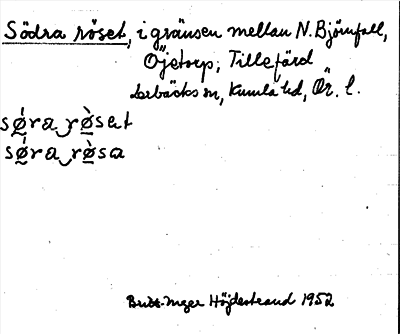 Södra röset, i gränsen mellan N. Björnfall,
Öjetorp, Tillefärd
Lerbäcks sn, Kumla hd, Ör. l.
sø̀ra‿rø̀sat
sø̀ra‿rø̀sa
Britt-Inger Höjdestrand 1952